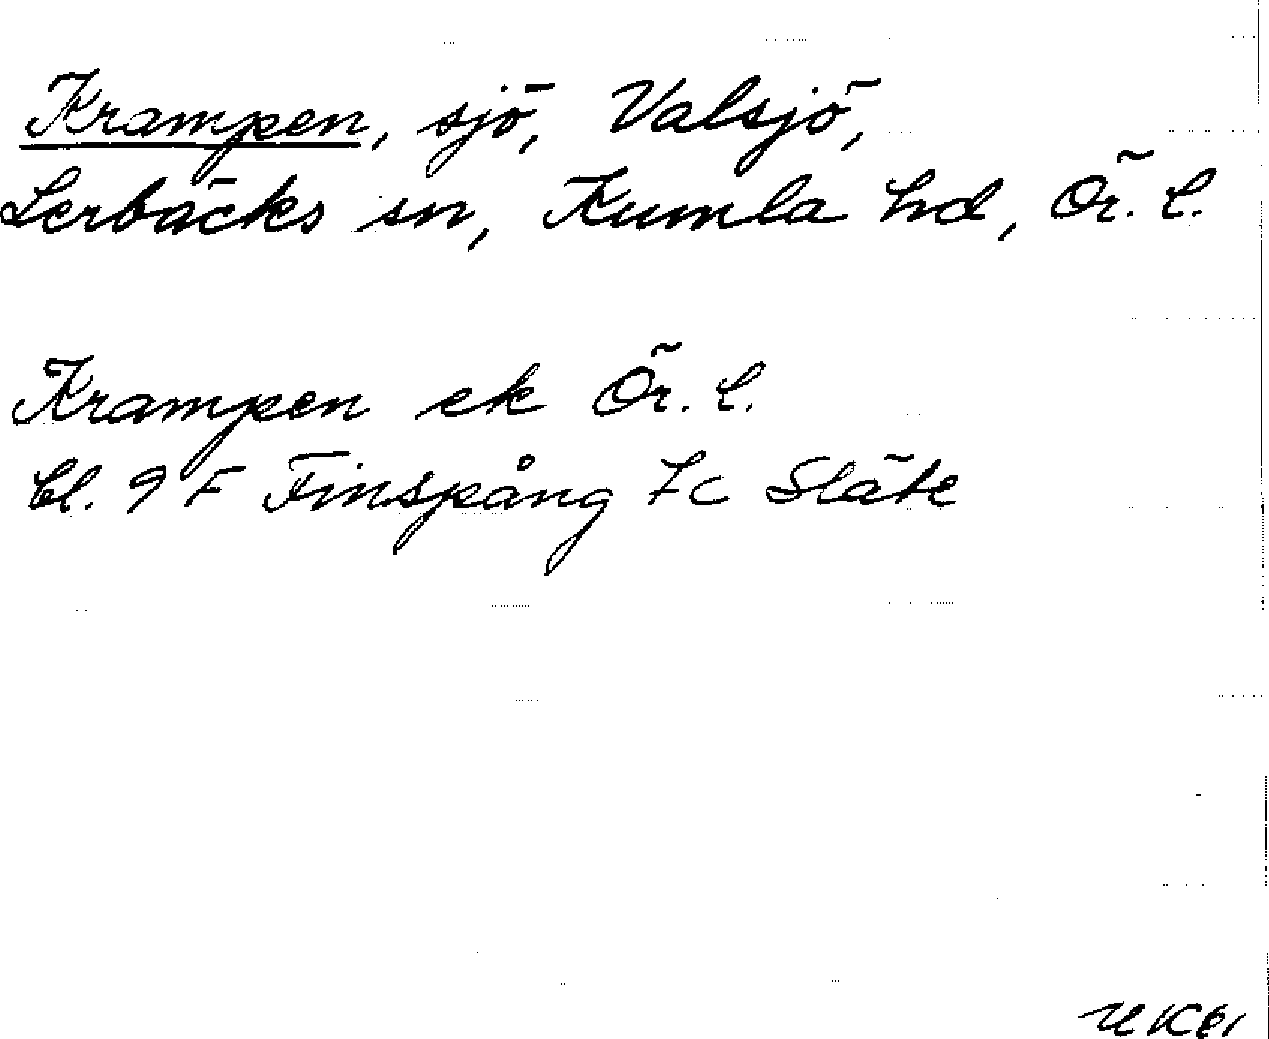 Krampen, sjö, Valsjö,
Lerbäcks sn, Kumla hd, Ör. l.
Krampen ek Ör. l.
bl. 9 F Finspång 7c Släte